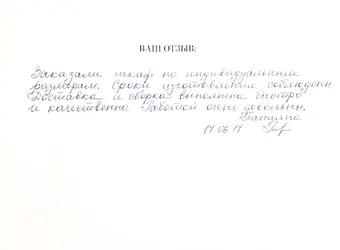 ВАШ ОТЗЫВ:
Заказали шкаф по индивидуальным
размерам. Сроки изготовления соблюдены
Доставка и сборка выполнена быстро
и качественно Работой очень довольны.
Татьяна
17.06.17